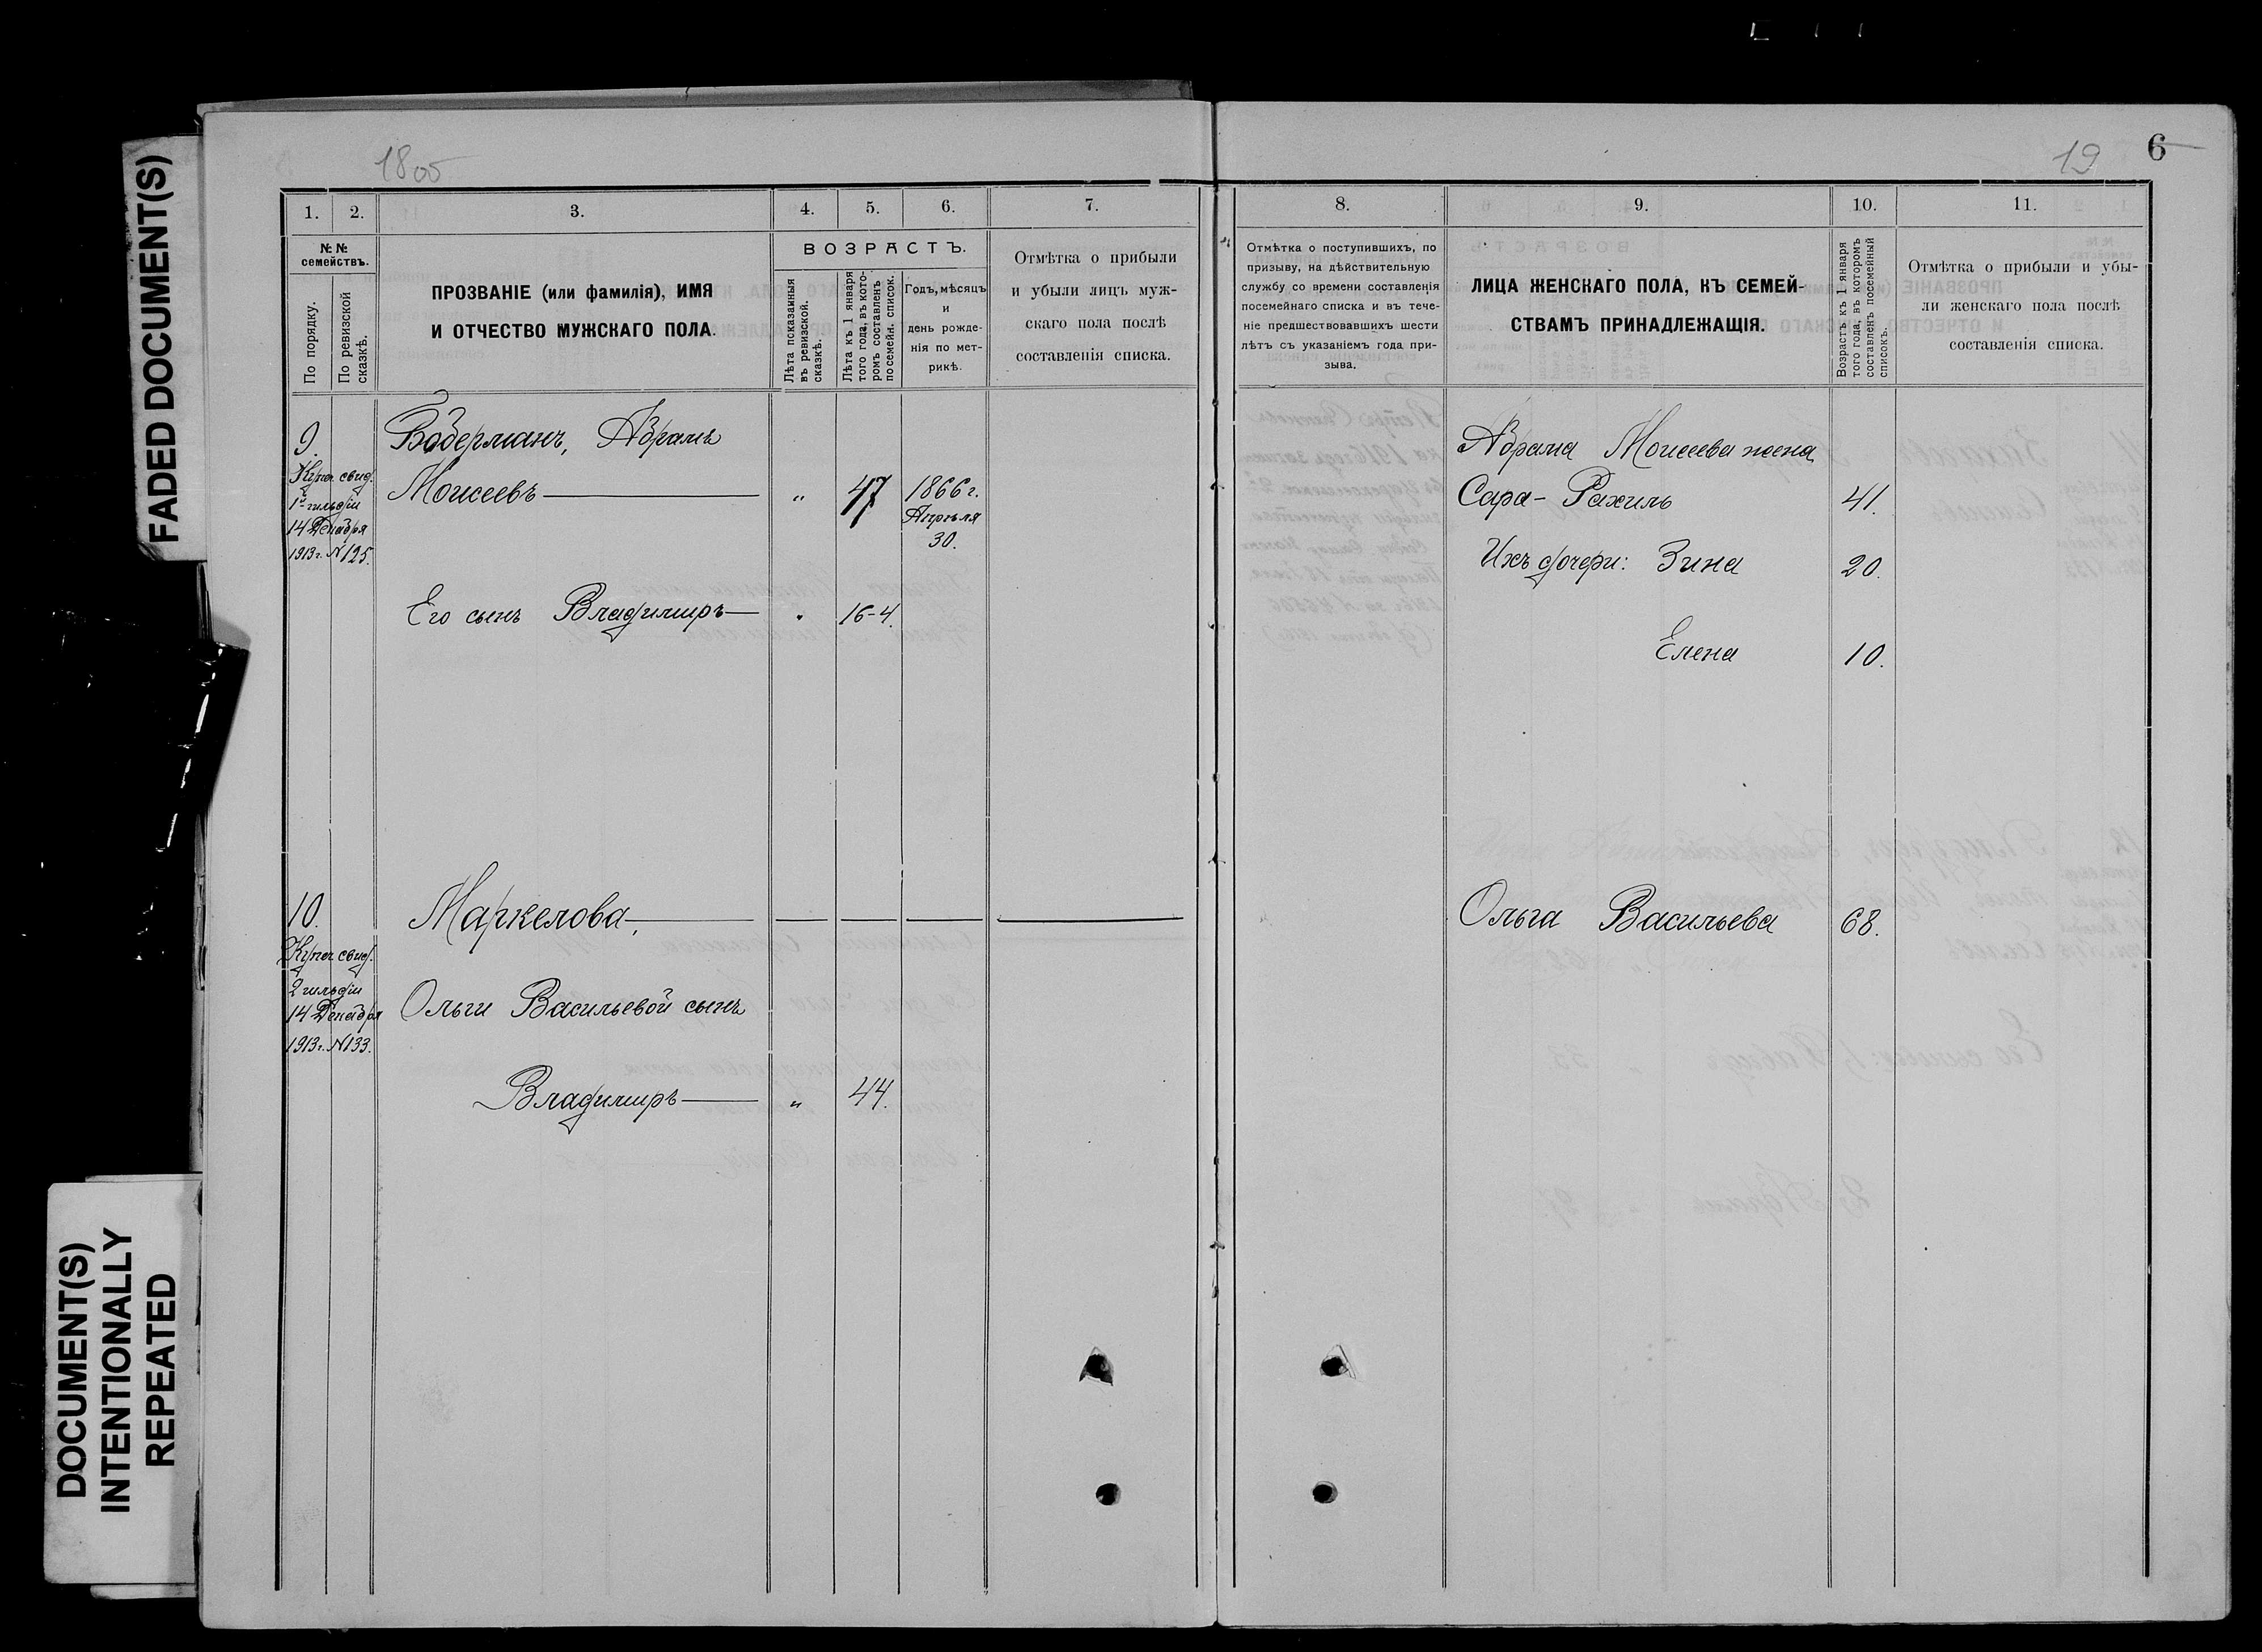 FADED DOCUMENT(S)
DOCUMENT(S)
INTENTIONALLY
REPEATED
1.
2.
3.
4.
5.
6.
7.
№ №
семействъ.
По порядку.
По ревизской
сказкѣ.
ПРОЗВАНІЕ (или фамилія), ИМЯ
И ОТЧЕСТВО МУЖСКАГО ПОЛА.
ВОЗРАСТЪ.
Лѣта показанныя
въ ревизской.
сказкѣ.
Лѣта къ 1 января
того года, въ кото-
ромъ составленъ
посемейн. список.
Годъ, мѣсяцъ
и
день рожде-
нія по мет-
рикѣ.
Отмѣтка о прибыли
и убыли лицъ муж-
скаго пола послѣ
составленія списка.
9.
Купеч. свид.
1й гильдіи
14 Декабря
1913 г. N 125.
Боберманъ, Абрамъ
Моисеевъ
"
47
1866 г.
Апрѣля
30.
Его сынъ Владимиръ
"
16-4.
10.
Купеч. свид.
2 гильдіи
14 Декабря
1913 г. N 133.
Маркелова,
Ольги Васильевой сынъ
Владимиръ
"
44.
19
6
8.
9.
10.
11.
Отмѣтка о поступившихъ, по
призыву, на дѣйствительную
службу со времени составленія
посемейнаго списка и въ тече-
ніе предшествовавшихъ шести
лѣтъ съ указаніемъ года при-
зыва.
ЛИЦА ЖЕНСКАГО ПОЛА, КЪ СЕМЕЙ-
СТВАМЪ ПРИНАДЛЕЖАЩІЯ.
Возрастъ къ 1 января
того года, въ которомъ
составленъ посемейный
списокъ.
Отмѣтка о прибыли и убы-
ли женскаго пола послѣ
составленія списка.
Абрама Моисеева жена
Сара-Рахиль 41.
Ихъ дочери: Зина 20.
Елена 10.
Ольга Васильева 68.